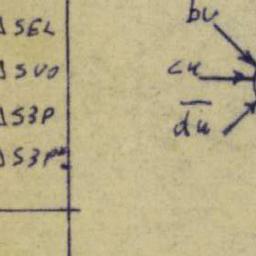 SEL
SVO
S3P
S3P
bu
cu
d̅u̅